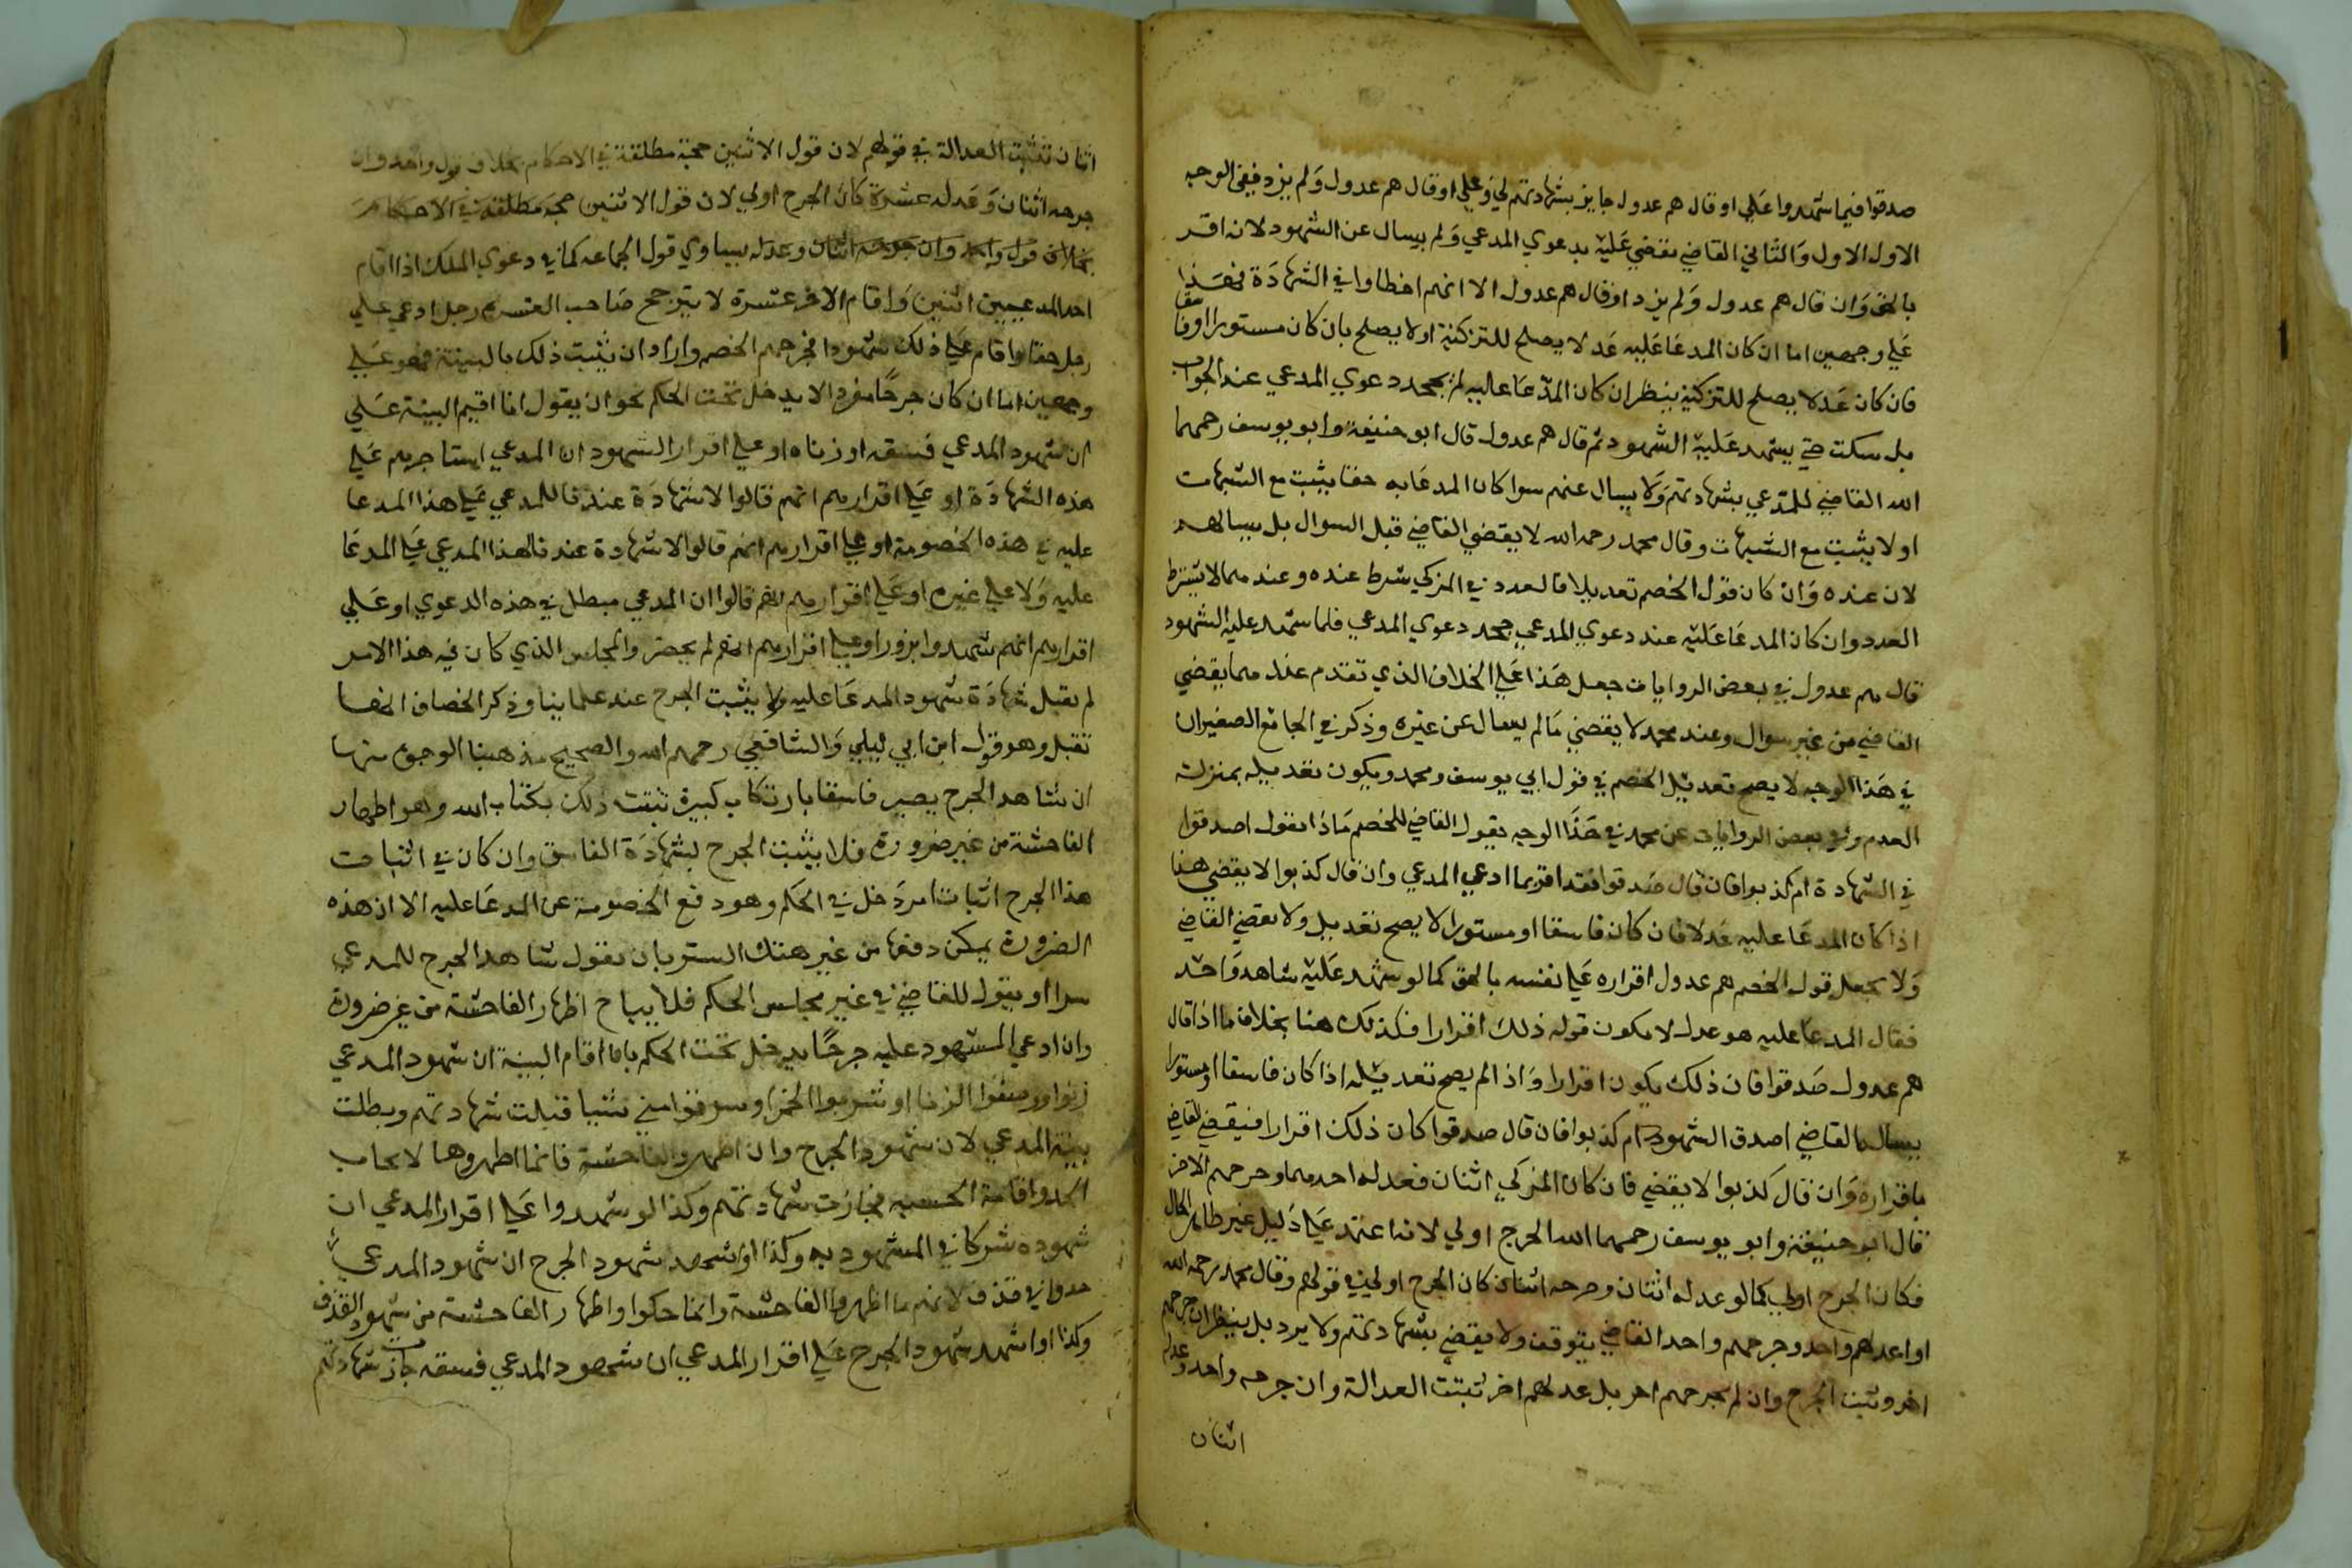 صدقوا فيما شهدوا علي او قال هم عدول جايز بشهادتهم لي وعلي او قال هم عدول ولم يزد ففي الوجه
الاول الاول والثاني القاضي يقضي عليه بدعوي المدعي ولم يسال عن الشهود لانه اقر
بالحق وان قال هم عدول ولم يزد او قال هم عدول الا انهم اخطاوا في الشهادة فهذا
علي وجهين اما ان كان المدعا عليه عدلا يصلح للتزكية او لا يصلح بان كان مستورا او فاسقا
فان كان عدلا يصلح للتزكية ينظر ان كان المدعا عليه لم يجحد دعوي المدعي عند الجواب
بل سكت حتي يشهد عليه الشهود ثم قال هم عدول قال ابو حنيفة وابو يوسف رحمهما
الله القاضي للمدعي بشهادتهم ولا يسال عنهم سوا كان المدعا به حقا يثبت مع الشبهات
او لا يثبت مع الشبهات وقال محمد رحمه الله لا يقضي القاضي قبل السوال بل يسالهم
لان عنده وان كان قول الخصم تعديلا فالعدد في المزكي شرط عنده وعندهما لا يشترط
العدد وان كان المدعا عليه عند دعوي المدعي جحد دعوي المدعي فلما شهد عليه الشهود
قال هم عدول في بعض الروايات جعل هذا علي الخلاف الذي تقدم عندهما يقضي
القاضي من غير سوال وعند محمد لا يقضي ما لم يسال عن غيره وذكر في الجامع الصغير ان
في هذا الوجه لا يصح تعديل الخصم في قول ابي يوسف ومحمد ويكون تعديله بمنزلة
العدم وفي بعض الروايات عن محمد في هذا الوجه يقول القاضي للخصم ماذا تقول اصدقوا
في الشهادة ام كذبوا فان قال صدقوا فقد اقر بما ادعي المدعي وان قال كذبوا لا يقضي هذا
اذا كان المدعا عليه عدلا فان كان فاسقا او مستورا لا يصح تعديله ولا يقضي القاضي
ولا يجعل قول الخصم هم عدول اقراره علي نفسه بالحق كما لو شهد عليه شاهد واحد
فقال المدعا عليه هو عدل لا يكون قوله ذلك اقرارا فكذلك هنا بخلاف ما اذا قال
هم عدول صدقوا فان ذلك يكون اقرارا واذا لم يصح تعديله اذا كان فاسقا او مستورا
يساله القاضي اصدق الشهود ام كذبوا فان قال صدقوا كان ذلك اقرارا فيقضي القاضي
باقراره وان قال كذبوا لا يقضي فان كان المزكي اثنان فعدله احدهما وجرحهم الاخر
قال ابو حنيفة وابو يوسف رحمهما الله الجرح اولي لانه اعتمد علي دليل غير ظاهر الحال
فكان الجرح اولي كما لو عدله اثنان وجرحه اثنان كان الجرح اولي في قولهم وقال محمد رحمه الله
اوا عدلهم واحد وجرحهم واحد القاضي يتوقف ولا يقضي بشهادتهم ولا يرد بل ينظر ان جرحهم
اخر وثبت الجرح وان لم يجرحهم اخر بل عدلهم اخر تثبت العدالة وان جرحه واحد وعدله
اثنان
اثنان تثبت العدالة في قولهم لان قول الاثنين حجة مطلقة في الاحكام بخلاف قول واحد وان
جرحه اثنان وعدله عشرة كان الجرح اولي لان قول الاثنين حجة مطلقة في الاحكام
بخلاف قول واحد وان جرحه اثنان وعدله يساوي قول الجماعه كما في دعوي الملك اذا اقام
احد المدعيين اثنين واقام الاخر عشرة لا يترجح صاحب العشره رجل ادعي علي
رجل حقا واقام علي ذلك شهودا فجرحهم الخصم واراد ان يثبت ذلك بالبينة فهو علي
وجهين اما ان كان جرحا مفردا لا يدخل تحت الحكم نحو ان يقول انا اقيم البينة علي
ان شهود المدعي فسقه او زناه او علي اقرار الشهود ان المدعي استاجرهم علي
هذه الشهادة او علي اقرارهم انهم قالوا لا شهادة عندنا للمدعي علي هذا المدعا
عليه في هذه الخصومة او علي اقرارهم انهم قالوا لا شهادة عندنا لهذا المدعي علي المدعا
عليه ولا علي غيره او علي اقرارهم انهم قالوا ان المدعي مبطل في هذه الدعوي او علي
اقرارهم انهم شهدوا بزور او علي اقرارهم انهم لم يحضروا المجلس الذي كان فيه هذا الامر
لم تقبل شهادة شهود المدعا عليه ولا يثبت الجرح عند علماينا وذكر الخصاف انها
تقبل وهو قول ابن ابي ليلي والشافعي رحمهم الله والصحيح مذهبنا لوجوه منها
ان شاهد الجرح يصير فاسقا بارتكاب كبيرة ثبتت ذلك بكتاب الله وهو اظهار
الفاحشة من غير ضرورة فلا يثبت الجرح بشهادة الفاسق وان كان في اثبات
هذا الجرح اثبات امر دخل في الحكم وهو دفع الخصومة عن المدعا عليه الا ان هذه
الضرورة يمكن دفعها من غير هتك الستر بان يقول شاهد الجرح للمدعي
سرا او يقول للقاضي في غير مجلس الحكم فلا يباح اظهار الفاحشة من غير ضرورة
وان ادعي المشهود عليه جرحا يدخل تحت الحكم بان اقام البينة ان شهود المدعي
زنوا ووصفوا الزنا او شربوا الخمر او سرقوا مني شيا قبلت شهادتهم وبطلت
بينة المدعي لان شهود الجرح وان اظهروا الفاحشة فانما اظهروها لايجاب
الحد واقامة الحسبه فجازت شهادتهم وكذا لو شهدوا علي اقرار المدعي ان
شهوده شركا في المشهود به وكذا لو شهد شهود الجرح ان شهود المدعي
حدوا في قذف لانهم ما اظهروا الفاحشة وانما حكوا واظهار الفاحشة من شهود القذف
وكذا اوا شهد شهود الجرح علي اقرار المدعي ان شهود المدعي فسقه جازت شهادتهم